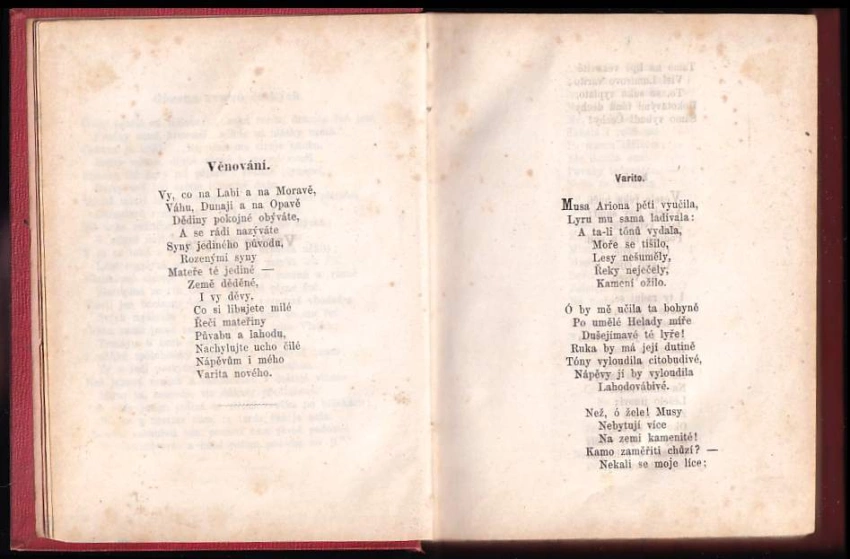 Věnování.
Vy, co na Labi a na Moravě,
Váhu, Dunaji a na Opavě
Dědiny pokojné obýváte,
A se rádi nazýváte
Syny jediného původu,
Rozenými syny
Mateře té jediné —
Země děděné,
I vy děvy,
Co si libujete milé
Řeči mateřiny
Půvabu a lahodu,
Nachylujte ucho čilé
Nápěvům i mého
Varita nového.
Varito.
Musa Ariona pěti vyučila,
Lyru mu sama ladívala:
A ta-li tónů vydala,
Moře se tišilo,
Lesy nešuměly,
Řeky neječely,
Kamení ožilo.
Ó by mě učila ta bohyně
Po umělé Helady míře
Dušejímavé té lyře!
Ruka by má její dutině
Tóny vyloudila citobudivé,
Nápěvy jí by vyloudila
Lahodovábivé.
Než, ó žele! Musy
Nebytují více
Na zemi kamenité!
Kamo zaměřiti chůzi? —
Nekalí se moje líce;